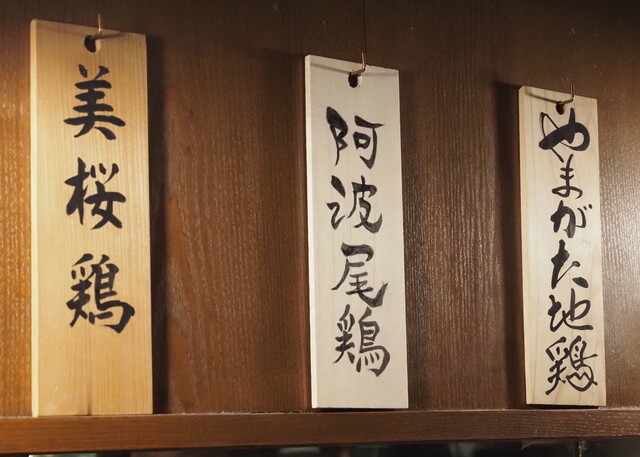 美桜鶏
阿波尾鶏
やまがた地鶏